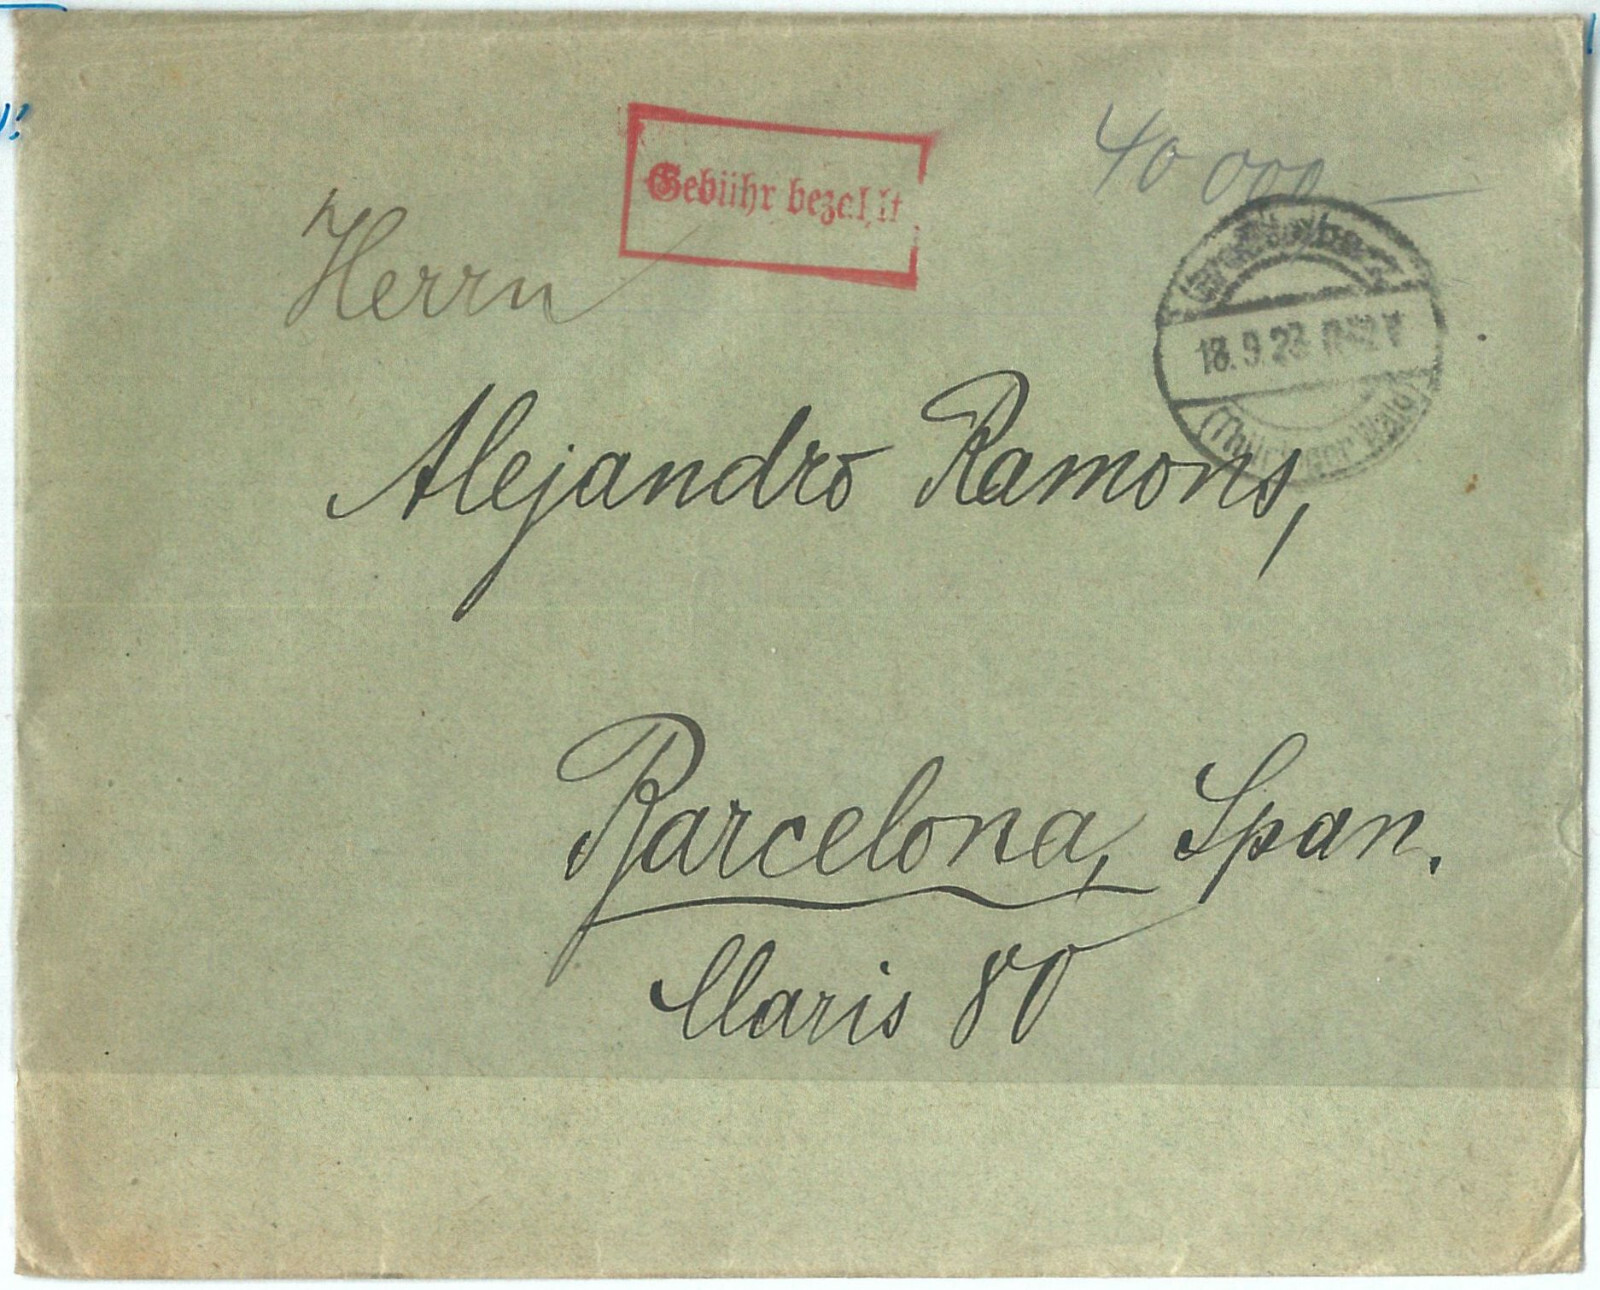 Gebühr bezahlt
40 000
Herrn
18.9.23
(Thüringer Wald)
Alejandro Ramons,
Barcelona, Span.
Claris 80